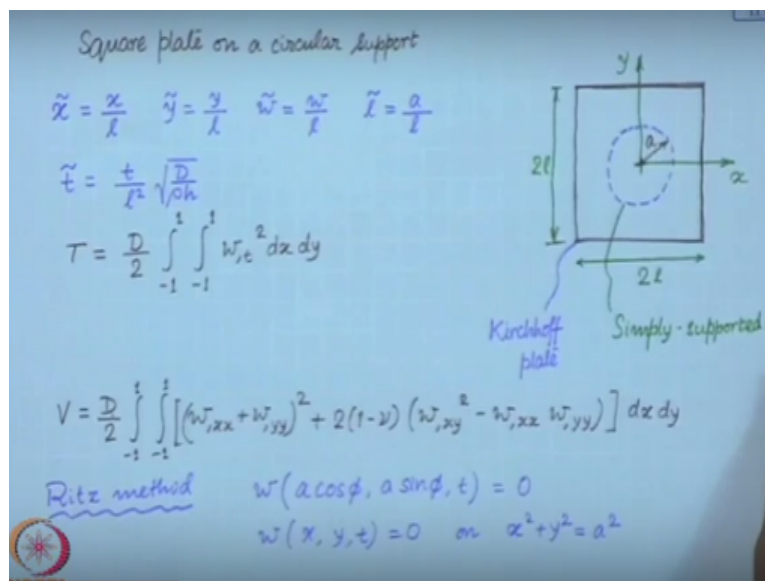 Square plate on a circular support
x̃ = x/l   ỹ = y/l   w̃ = w/l   l̃ = a/l
t̃ = t/l² √(D/ρh)
T = D/2 ∫₋₁¹ ∫₋₁¹ w,t² dx dy
y
a
x
2l
2l
Kirchhoff plate
Simply-supported
V = D/2 ∫₋₁¹ ∫₋₁¹ [(w,xx + w,yy)² + 2(1-ν)(w,xy² - w,xx w,yy)] dx dy
Ritz method   w(a cosϕ, a sinϕ, t) = 0
w(x, y, t) = 0 on x² + y² = a²